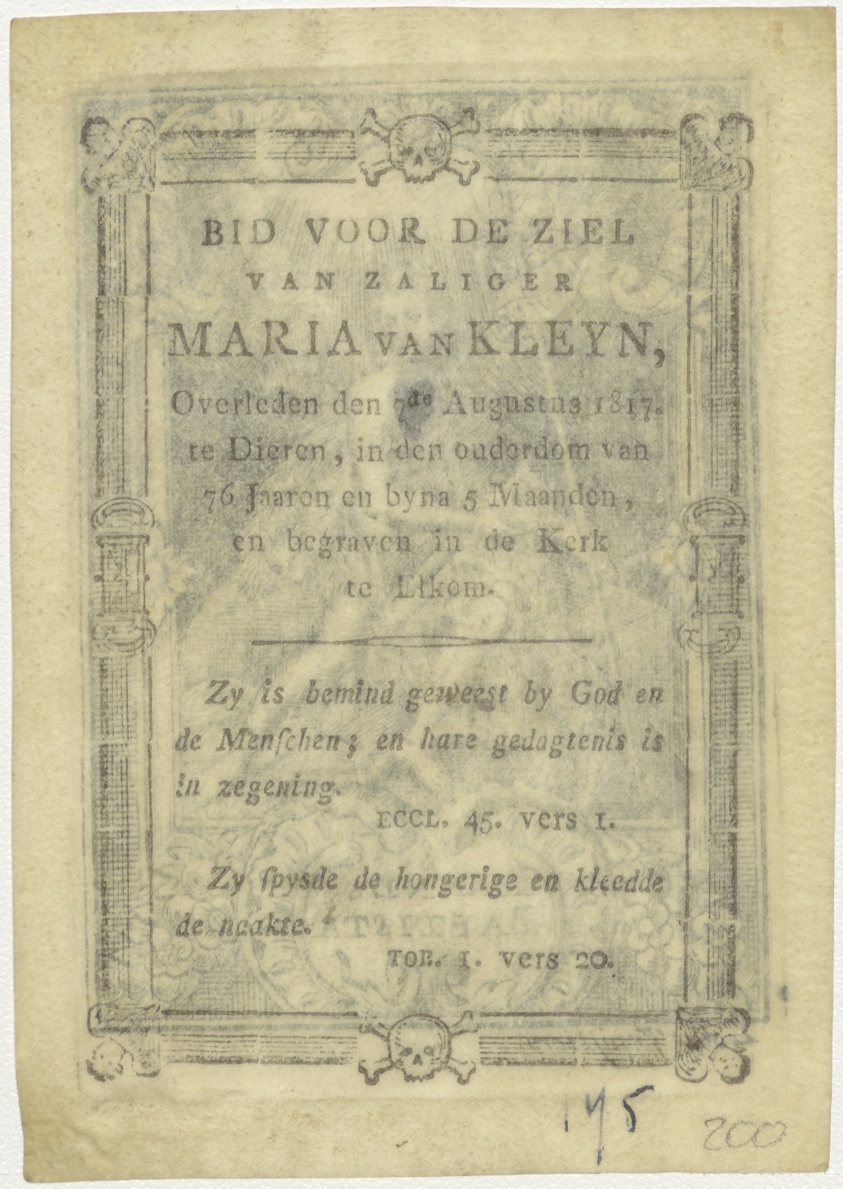 BID VOOR DE ZIEL
VAN ZALIGER
MARIA VAN KLEYN,
Overleden den 7de Augustus 1817.
te Dieren, in den ouderdom van
76 Jaaren en byna 5 Maanden,
en begraven in de Kerk
te Elkom.
Zy is bemind geweest by God en
de Menſchen; en hare gedagtenis is
in zegening.
ECCL. 45. vers 1.
Zy ſpysde de hongerige en kleedde
de naakte.
TOB. 1. vers 20.
175
200